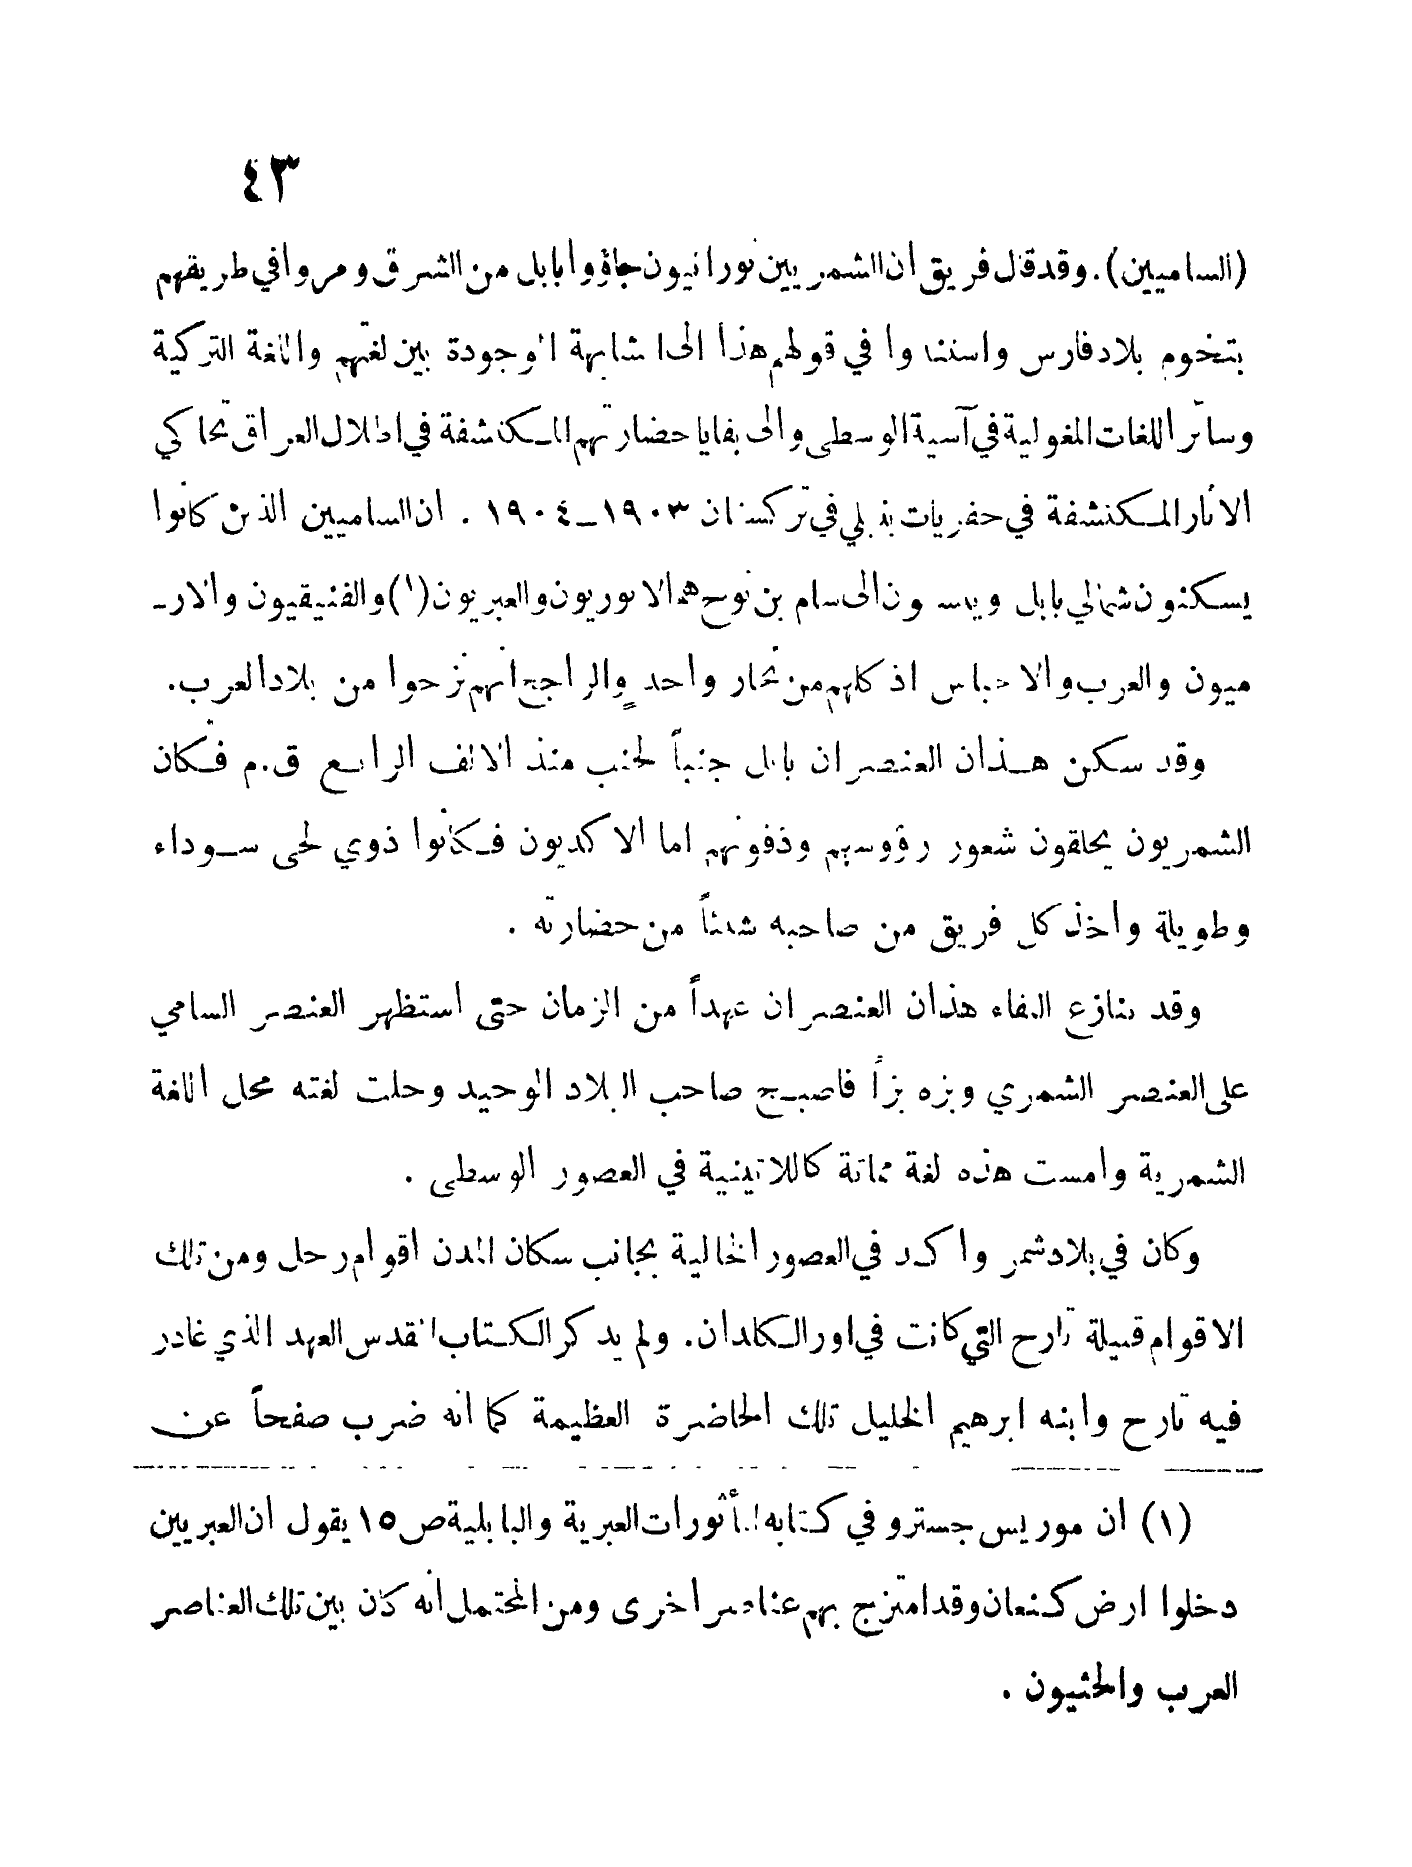 ٤٣
(الساميين). وقد قال فريق ان الشمريين تورانيون جاؤوا بابل من الشرق ومروا في طريقهم
بتخوم بلاد فارس واستندوا في قولهم هذا الى المشابهة الموجودة بين لغتهم واللغة التركية
وسائر اللغات المغولية في آسية الوسطى والى بقايا حضارتهم المكتشفة في اطلال العراق تحاكي
الآثار المكتشفة في حفريات في تركستان ١٩٠٣–١٩٠٤ . ان الساميين الذين كانوا
يسكنون شمالي بابل وينسبون الى سام بن نوح هم الاثوريون والعبريون (١) والفنيقيون والارـ
ميون والعرب والاحباس اذ كلهم من نجار واحد والراجح انهم نزحوا من بلاد العرب.
وقد سكن هذان العنصران بابل جنباً لجنب منذ الالف الرابع ق.م فكان
الشمريون يحلقون شعور رؤوسهم وذقونهم اما الاكديون فكانوا ذوي لحى سوداء
وطويلة واخذ كل فريق من صاحبه شيئاً من حضارته .
وقد تنازع البقاء هذان العنصران عهداً من الزمان حتى استظهر العنصر السامي
على العنصر الشمري وبزه بزاً فاصبح صاحب البلاد الوحيد وحلت لغته محل اللغة
الشمرية وامست هذه لغة مماتة كاللاتينية في العصور الوسطى .
وكان في بلاد شمر واكد في العصور الخالية بجانب سكان المدن اقوام رحل ومن تلك
الاقوام قبيلة تارح التي كانت في اور الكلدان. ولم يذكر الكتاب المقدس العهد الذي غادر
فيه تارح وابنه ابرهيم الخليل تلك الحاضرة العظيمة كما انه ضرب صفحاً عن
(١) ان موريس جسترو في كتابه المأثورات العبرية والبابلية ص ١٥ يقول ان العبريين
دخلوا ارض كنعان وقد امتزج بهم عناصر اخرى ومن المحتمل انه كان بين تلك العناصر
العرب والحثيون .